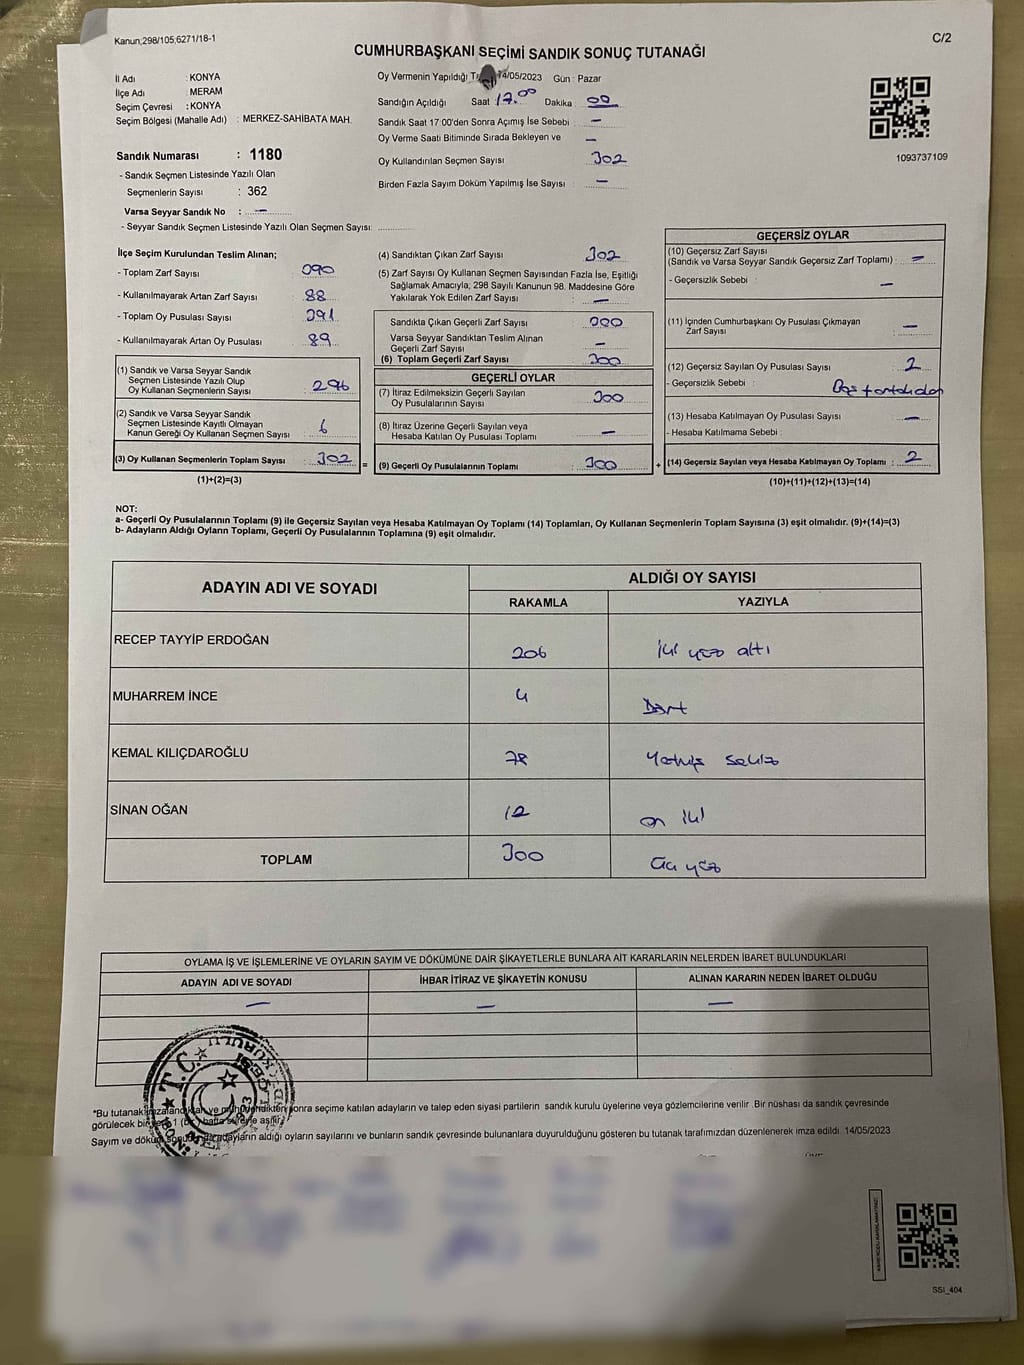 Kanun;298/105;6271/18-1
C/2
CUMHURBAŞKANI SEÇİMİ SANDIK SONUÇ TUTANAĞI
İl Adı : KONYA
İlçe Adı : MERAM
Seçim Çevresi : KONYA
Seçim Bölgesi (Mahalle Adı) : MERKEZ-SAHİBATA MAH.
Sandık Numarası : 1180
- Sandık Seçmen Listesinde Yazılı Olan
Seçmenlerin Sayısı : 362
Varsa Seyyar Sandık No : —
- Seyyar Sandık Seçmen Listesinde Yazılı Olan Seçmen Sayısı:
Oy Vermenin Yapıldığı 14/05/2023 Gün : Pazar
Sandığın Açıldığı Saat 17.00 Dakika 00
Sandık Saat 17:00'den Sonra Açımış İse Sebebi : —
Oy Verme Saati Bitiminde Sırada Bekleyen ve —
Oy Kullandırılan Seçmen Sayısı 302
Birden Fazla Sayım Döküm Yapılmış İse Sayısı : —
1093737109
İlçe Seçim Kurulundan Teslim Alınan;
- Toplam Zarf Sayısı
- Kullanılmayarak Artan Zarf Sayısı : 88
- Toplam Oy Pusulası Sayısı
- Kullanılmayarak Artan Oy Pusulası : 89
(1) Sandık ve Varsa Seyyar Sandık
Seçmen Listesinde Yazılı Olup
Oy Kullanan Seçmenlerin Sayısı : 296
(2) Sandık ve Varsa Seyyar Sandık
Seçmen Listesinde Kayıtlı Olmayan
Kanun Gereği Oy Kullanan Seçmen Sayısı : 6
(3) Oy Kullanan Seçmenlerin Toplam Sayısı : 302
(1)+(2)=(3)
(4) Sandıktan Çıkan Zarf Sayısı : 302
(5) Zarf Sayısı Oy Kullanan Seçmen Sayısından Fazla İse, Eşitliği
Sağlamak Amacıyla; 298 Sayılı Kanunun 98. Maddesine Göre
Yakılarak Yok Edilen Zarf Sayısı : —
Sandıkta Çıkan Geçerli Zarf Sayısı : 300
Varsa Seyyar Sandıktan Teslim Alınan
Geçerli Zarf Sayısı : —
(6) Toplam Geçerli Zarf Sayısı : 300
GEÇERLİ OYLAR
(7) İtiraz Edilmeksizin Geçerli Sayılan
Oy Pusulalarının Sayısı : 300
(8) İtiraz Üzerine Geçerli Sayılan veya
Hesaba Katılan Oy Pusulası Toplamı : —
= (9) Geçerli Oy Pusulalarının Toplamı : 300
GEÇERSİZ OYLAR
(10) Geçersiz Zarf Sayısı
(Sandık ve Varsa Seyyar Sandık Geçersiz Zarf Toplamı) : —
- Geçersizlik Sebebi : —
(11) İçinden Cumhurbaşkanı Oy Pusulası Çıkmayan
Zarf Sayısı : —
(12) Geçersiz Sayılan Oy Pusulası Sayısı : 2
- Geçersizlik Sebebi :
(13) Hesaba Katılmayan Oy Pusulası Sayısı : —
- Hesaba Katılmama Sebebi :
+ (14) Geçersiz Sayılan veya Hesaba Katılmayan Oy Toplamı : 2
(10)+(11)+(12)+(13)=(14)
NOT:
a- Geçerli Oy Pusulalarının Toplamı (9) ile Geçersiz Sayılan veya Hesaba Katılmayan Oy Toplamı (14) Toplamları, Oy Kullanan Seçmenlerin Toplam Sayısına (3) eşit olmalıdır. (9)+(14)=(3)
b- Adayların Aldığı Oyların Toplamı, Geçerli Oy Pusulalarının Toplamına (9) eşit olmalıdır.
ADAYIN ADI VE SOYADI
ALDIĞI OY SAYISI
RAKAMLA YAZIYLA
RECEP TAYYİP ERDOĞAN 206 iki yüz altı
MUHARREM İNCE 4 Dört
KEMAL KILIÇDAROĞLU 78 Yetmiş sekiz
SİNAN OĞAN 12 on iki
TOPLAM 300 üç yüz
OYLAMA İŞ VE İŞLEMLERİNE VE OYLARIN SAYIM VE DÖKÜMÜNE DAİR ŞİKAYETLERLE BUNLARA AİT KARARLARIN NELERDEN İBARET BULUNDUKLARI
ADAYIN ADI VE SOYADI İHBAR İTİRAZ VE ŞİKAYETİN KONUSU ALINAN KARARIN NEDEN İBARET OLDUĞU
— — —
T.C.
*Bu tutanak imzalandıktan ve mühürlendikten sonra seçime katılan adayların ve talep eden siyasi partilerin sandık kurulu üyelerine veya gözlemcilerine verilir. Bir nüshası da sandık çevresinde
görülecek bir yere 1 (bir) hafta süreyle asılır.
Sayım ve döküm adayların aldığı oyların sayılarını ve bunların sandık çevresinde bulunanlara duyurulduğunu gösteren bu tutanak tarafımızdan düzenlenerek imza edildi. 14/05/2023
SSI_404